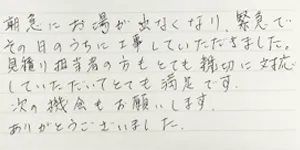 朝急にお湯が出なくなり、緊急で
その日のうちに工事していただきました。
見積り担当者の方もとても親切に対応
していただいてとても満足です。
次の機会もお願いします。
ありがとうございました。